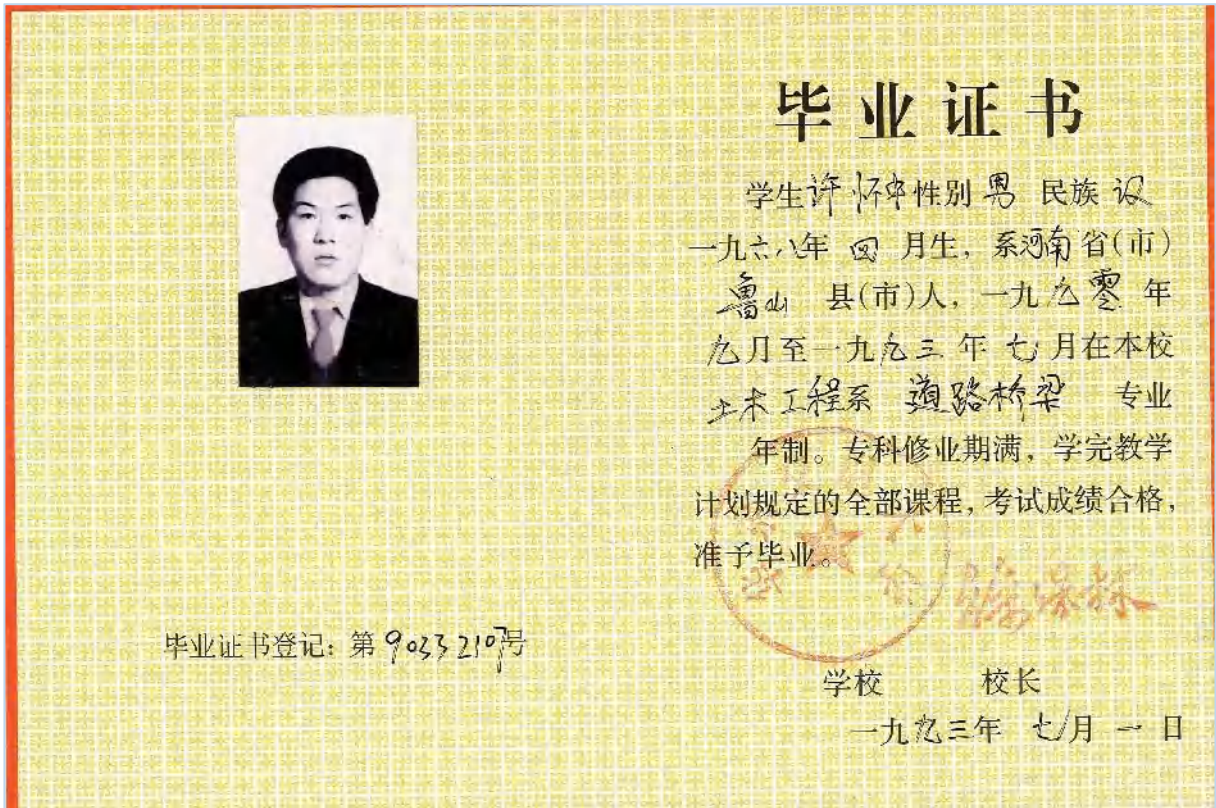 毕业证书
学生许怀中性别男 民族汉
一九六八年 四 月生，系河南省(市)
鲁山 县(市)人，一九九零 年
九月至一九九三 年 七月在本校
土木工程系 道路桥梁 专业
年制。专科修业期满，学完教学
计划规定的全部课程，考试成绩合格，
准予毕业。
毕业证书登记：第90332107号
学校 校长
一九九三年 七月 一 日